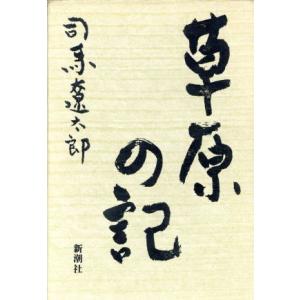 草原の記
司馬遼太郎
新潮社